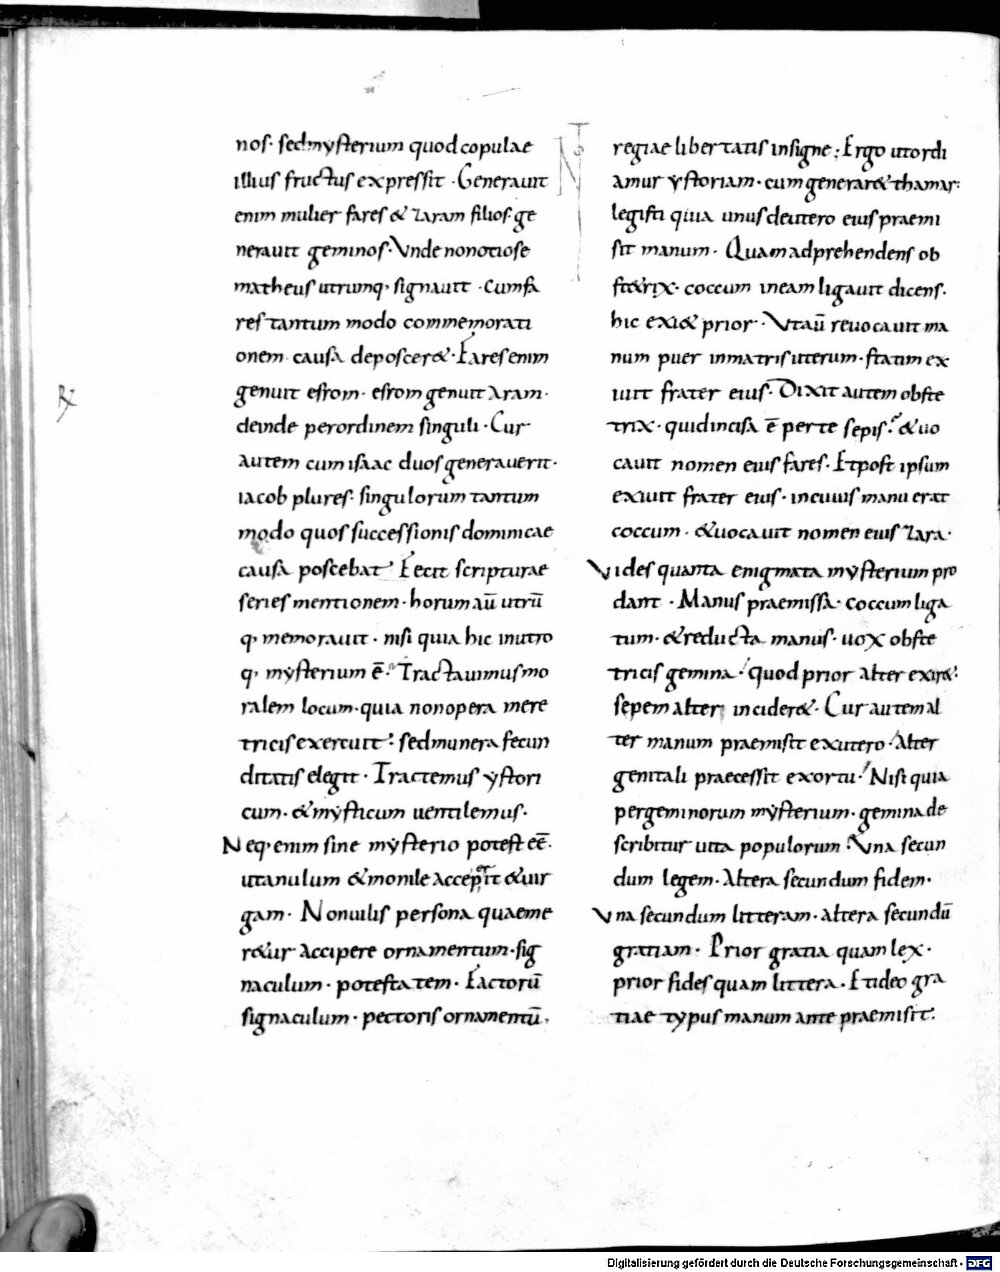 nos· sed mysterium quod copulae
illius fructus expressit · Generauit
enim mulier fares & zaram filios· ge
nerauit geminos· Vnde non otiose
matheus utrumq· signauit · cum fa
res tantum modo commemorati
onem causa deposcer&· Fares enim
genuit esrom· esrom genuit Aram·
deinde per ordinem singuli · Cur
autem cum isaac duos generauerit·
iacob plures· singulorum tantum
modo quos successionis dominicae
causa poscebat· Fecit scripturae
series mentionem· horum aū utrū
q· memorauit · nisi quia hic inutro
q· mysterium ē· Tractauimus mo
ralem locum· quia non opera mere
tricis exercuit· sed munera fecun
ditatis elegit · Tractemus ystori
cum· & mysticum uentilemus·
Neq· enim sine mysterio potest eē·
ut anulum & monile acceperit & uir
gam· Non uilis persona quae me
r&ur accipere ornamentum· sig
naculum· potestatem· Factorū
signaculum· pectoris ornamentū·
regiae libertatis insigne; Ergo ut ordi
amur ystoriam· cum generar& thamar:
legisti quia unus de utero eius praemi
sit manum· Quam adprehendens ob
st&rix· coccum in eam ligauit dicens·
hic exi& prior· Vt aū reuocauit ma
num puer in matris uterum· statim ex
iuit frater eius· Dixit autem obste
trix· quid incisa ē per te sepis? & uo
cauit nomen eius fares· Et post ipsum
exiuit frater eius· in cuius manu erat
coccum· & uocauit nomen eius zara·
Vides quanta enigmata mysterium pro
dant · Manus praemissa· coccum liga
tum· & reducta manus· uox obste
tricis gemina· Quod prior alter exir&·
sepem alter incider&· Cur autem al
ter manum praemisit ex utero· Alter
genitali praecessit exortu· Nisi quia
per geminorum mysterium· gemina de
scribitur uita populorum· Vna secun
dum legem· Altera secundum fidem·
Vna secundum litteram· altera secundū
gratiam· Prior gratia quam lex·
prior fides quam littera· Et ideo gra
tiae typus manum ante praemisit·
Digitalisierung gefördert durch die Deutsche Forschungsgemeinschaft - DFG